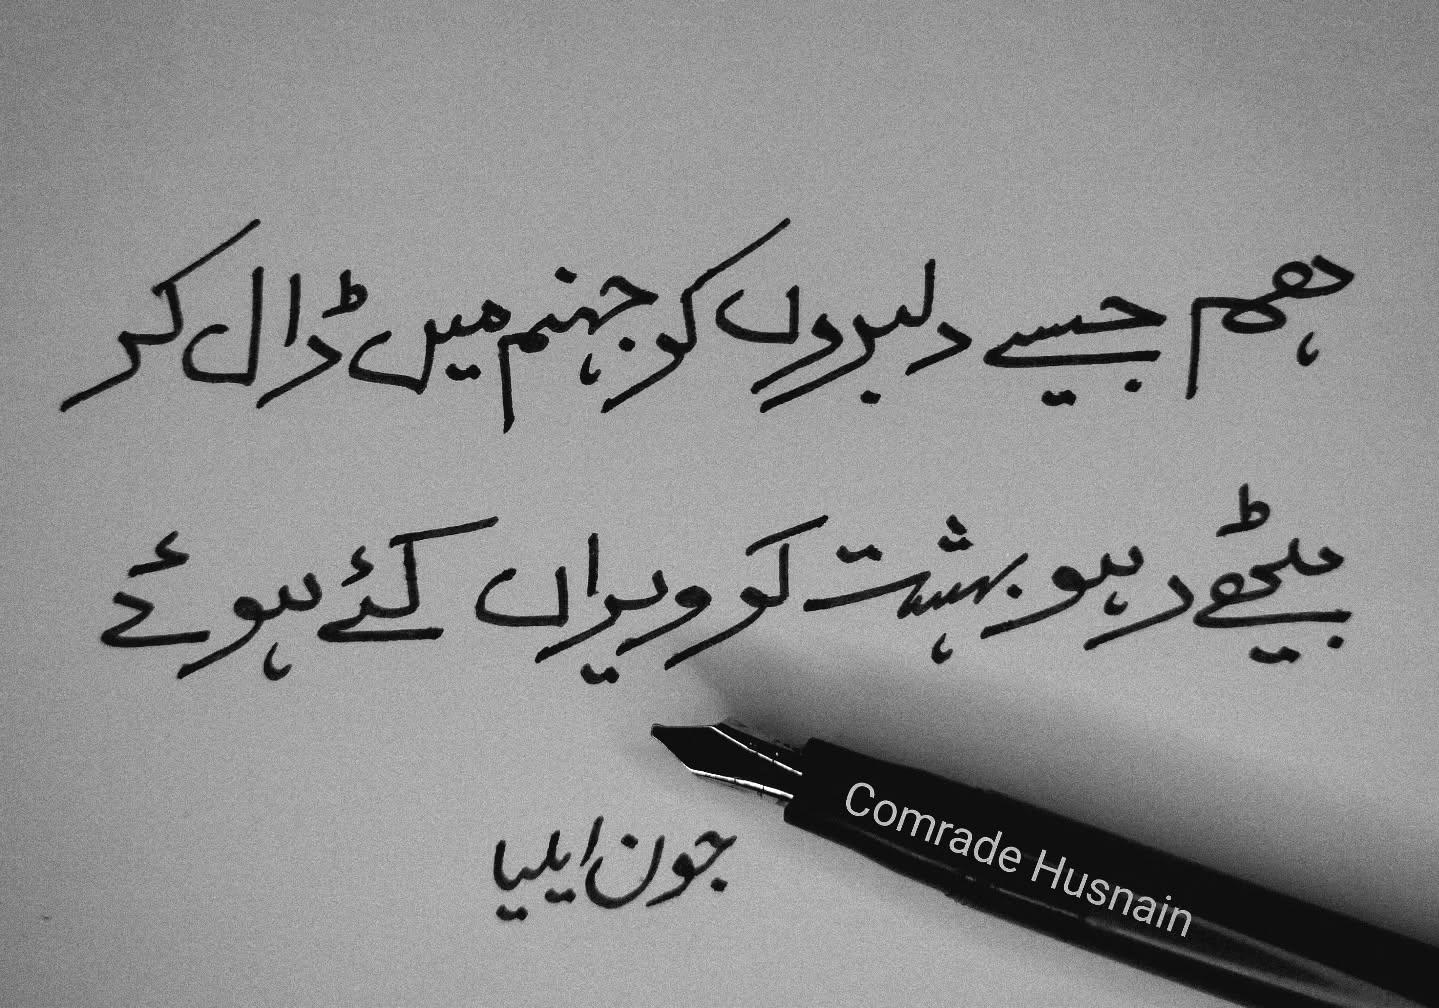 ہم جیسے دلبروں کو جہنم میں ڈال کر
بیٹھے رہو بہشت کو ویراں کئے ہوئے
جون ایلیا
Comrade Husnain